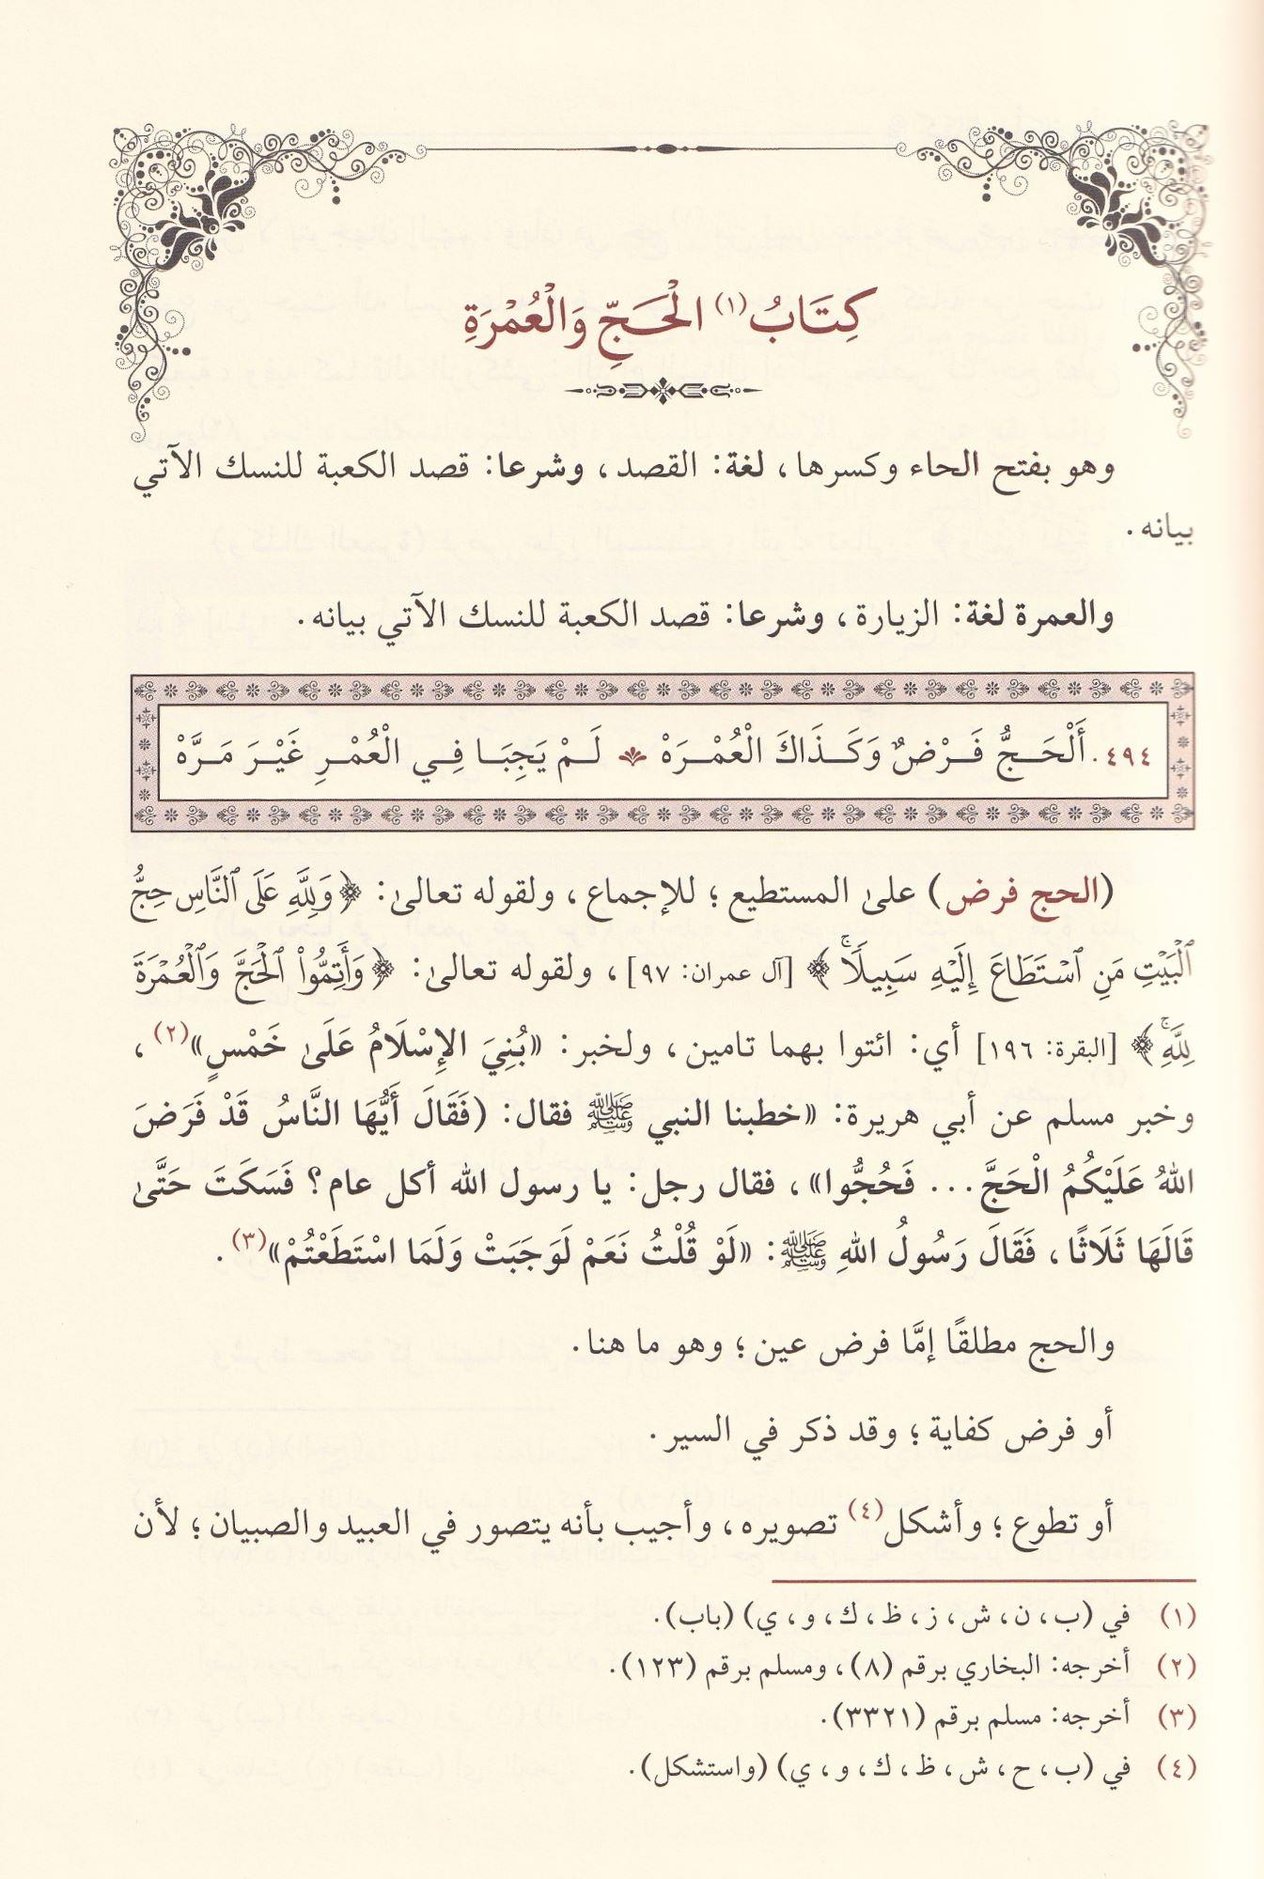 كِتَابُ(١) الْحَجِّ وَالْعُمْرَةِ
وهو بفتح الحاء وكسرها، لغة: القصد، وشرعا: قصد الكعبة للنسك الآتي
بيانه.
والعمرة لغة: الزيارة، وشرعا: قصد الكعبة للنسك الآتي بيانه.
٤٩٤. أَلْحَجُّ فَرْضٌ وَكَذَاكَ الْعُمْرَهْ لَمْ يَجِبَا فِي الْعُمْرِ غَيْرَ مَرَّهْ
(الحج فرض) على المستطيع؛ للإجماع، ولقوله تعالىٰ: ﴿وَلِلَّهِ عَلَى ٱلنَّاسِ حِجُّ
ٱلْبَيْتِ مَنِ ٱسْتَطَاعَ إِلَيْهِ سَبِيلًاۚ﴾ [آل عمران: ٩٧]، ولقوله تعالىٰ: ﴿وَأَتِمُّوا۟ ٱلْحَجَّ وَٱلْعُمْرَةَ
لِلَّهِۚ﴾ [البقرة: ١٩٦] أي: ائتوا بهما تامين، ولخبر: «بُنِيَ الإِسْلَامُ عَلَىٰ خَمْسٍ»(٢)،
وخبر مسلم عن أبي هريرة: «خطبنا النبي ﷺ فقال: (فَقَالَ أَيُّهَا النَّاسُ قَدْ فَرَضَ
اللهُ عَلَيْكُمُ الْحَجَّ... فَحُجُّوا»، فقال رجل: يا رسول الله أكل عام؟ فَسَكَتَ حَتَّىٰ
قَالَهَا ثَلَاثًا، فَقَالَ رَسُولُ اللهِ ﷺ: «لَوْ قُلْتُ نَعَمْ لَوَجَبَتْ وَلَمَا اسْتَطَعْتُمْ»(٣).
والحج مطلقًا إمَّا فرض عين؛ وهو ما هنا.
أو فرض كفاية؛ وقد ذكر في السير.
أو تطوع؛ وأشكل(٤) تصويره، وأجيب بأنه يتصور في العبيد والصبيان؛ لأن
(١) في (ب، ن، ش، ز، ظ، ك، و، ي) (باب).
(٢) أخرجه: البخاري برقم (٨)، ومسلم برقم (١٢٣).
(٣) أخرجه: مسلم برقم (٣٣٢١).
(٤) في (ب، ح، ش، ظ، ك، و، ي) (واستشكل).